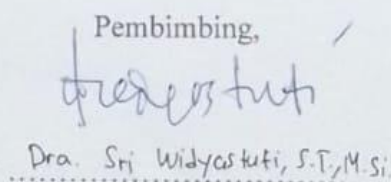 Pembimbing,
Dra. Sri Widyastuti, S.T., M.Si